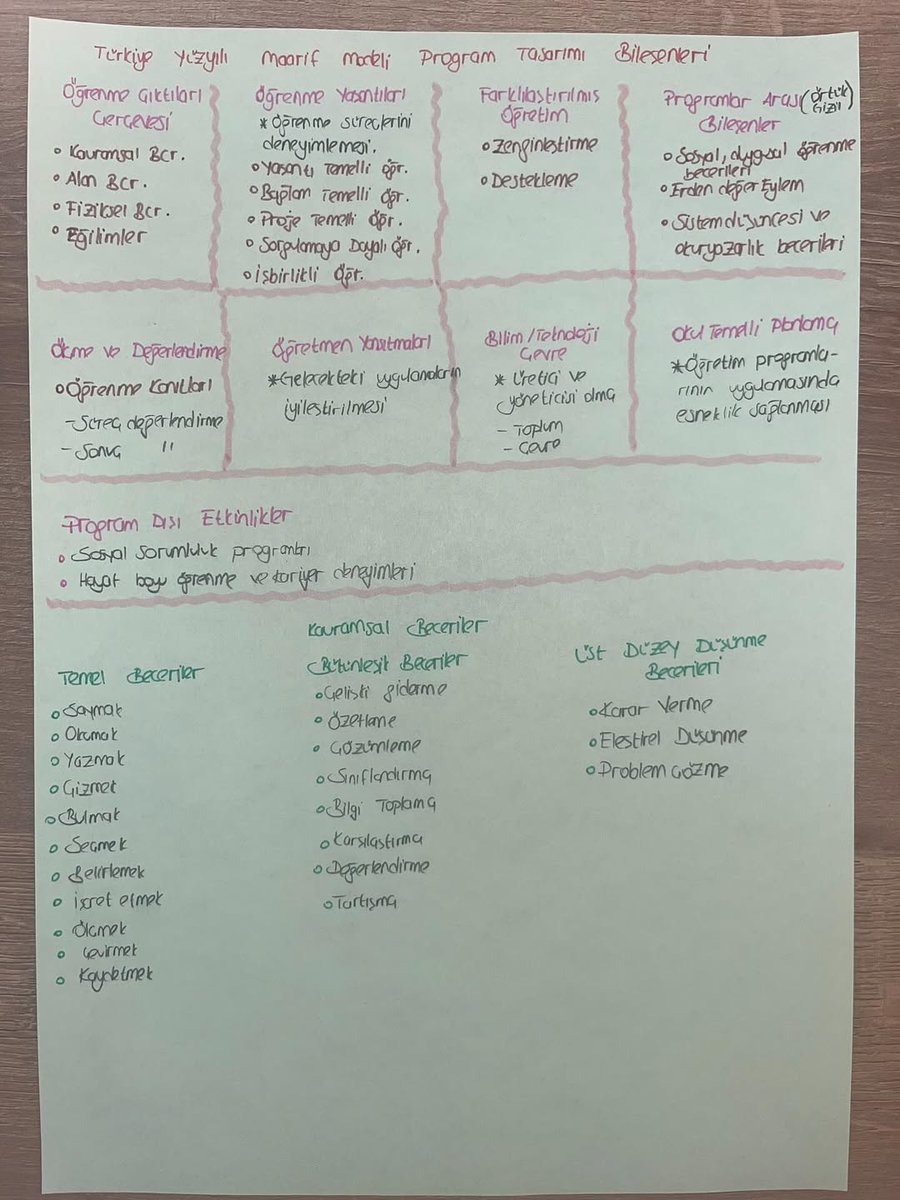 Türkiye Yüzyılı Maarif Modeli Program Tasarımı Bileşenleri
Öğrenme Çıktıları
Çerçevesi
• Kavramsal Bcr.
• Alan Bcr.
• Fiziksel Bcr.
• Eğilimler
Öğrenme Yaşantıları
* Öğrenme süreçlerini
deneyimlemesi.
• Yaşantı Temelli öğr.
• Bağlam Temelli öğr.
• Proje Temelli öğr.
• Sorgulamaya Dayalı öğr.
• İşbirlikli Öğr.
Farklılaştırılmış
Öğretim
• Zenginleştirme
• Destekleme
Programlar Arası (örtük
Gizli)
Bileşenler
• Sosyal, duygusal öğrenme
becerileri
• Erdem değer Eylem
• Sistem düşüncesi ve
okuryazarlık becerileri
Ölçme ve Değerlendirme
• Öğrenme Kanıtları
- Süreç değerlendirme
- Sonuç "
Öğretmen Yansıtmaları
* Gelecekteki uygulamaların
iyileştirilmesi
Bilim/Teknoloji
Çevre
* Üretici ve
yöneticisi olma
- Toplum
- Çevre
Okul Temelli Planlama
* Öğretim programla-
rının uygulamasında
esneklik sağlanması
Program Dışı Etkinlikler
• Sosyal sorumluluk programları
• Hayat boyu öğrenme ve kariyer deneyimleri
Kavramsal Beceriler
Temel Beceriler
• Saymak
• Okumak
• Yazmak
• Çizmek
• Bulmak
• Seçmek
• Belirlemek
• işaret etmek
• Ölçmek
• Çevirmek
• Kaydetmek
Bütünleşik Beceriler
• Çelişki giderme
• Özetleme
• Çözümleme
• Sınıflandırma
• Bilgi Toplama
• Karşılaştırma
• Değerlendirme
• Tartışma
Üst Düzey Düşünme
Becerileri
• Karar Verme
• Eleştirel Düşünme
• Problem Çözme